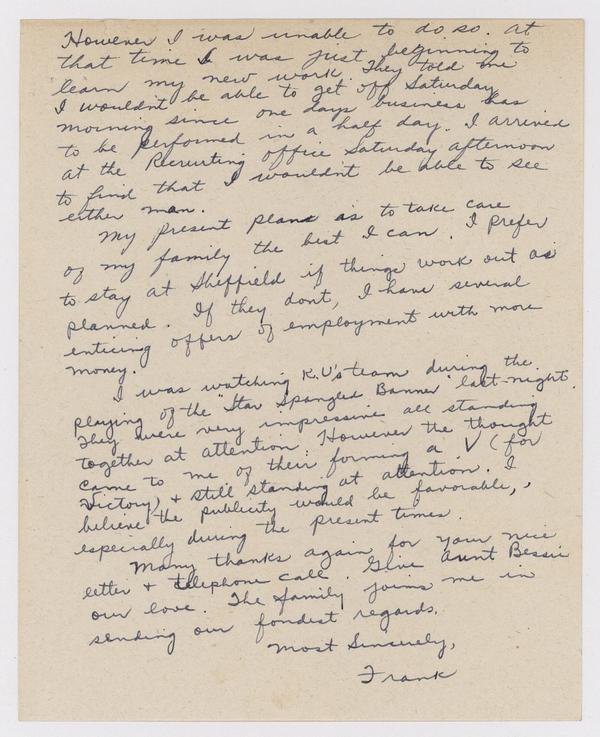 However I was unable to do so. At
that time I was just beginning to
learn my new work. They told me
I wouldnt be able to get off Saturday
morning since one days business has
to be performed in a half day. I arrived
at the Recruiting office Saturday afternoon
to find that I wouldnt be able to see
either man.
My present plans is to take care
of my family the best I can. I prefer
to stay at Sheffield if things work out as
planned. If they dont, I have several
enticing offers of employment with more
money.
I was watching K.U's team during the
playing of the "Star Spangled Banner" last night.
They were very impressive all standing
together at attention. However the thought
came to me of their forming a V (for
Victory) & still standing at attention. I
believe the publicity would be favorable,
especially during the present times.
Many thanks again for your nice
letter & telephone call. Give Aunt Bessie
our love. The family joins me in
sending our fondest regards.
Most Sincerely,
Frank